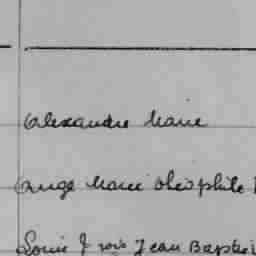 Alexandre Marie
Ange Marie Théophile
Louis Jean Baptis